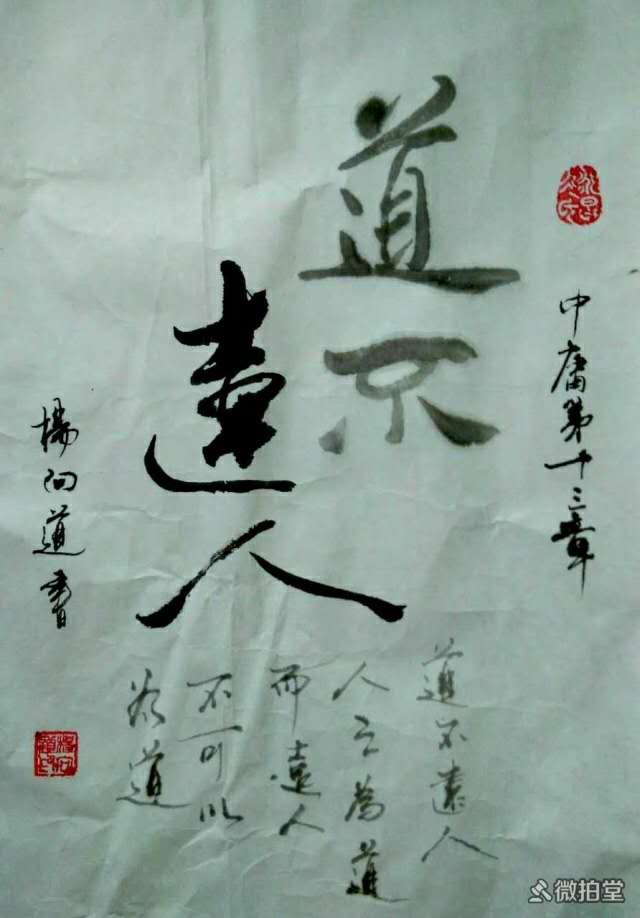 中庸第十三章
道不
遠人
道不遠人
人之為道
而遠人
不可以
為道
楊向道書
微拍堂